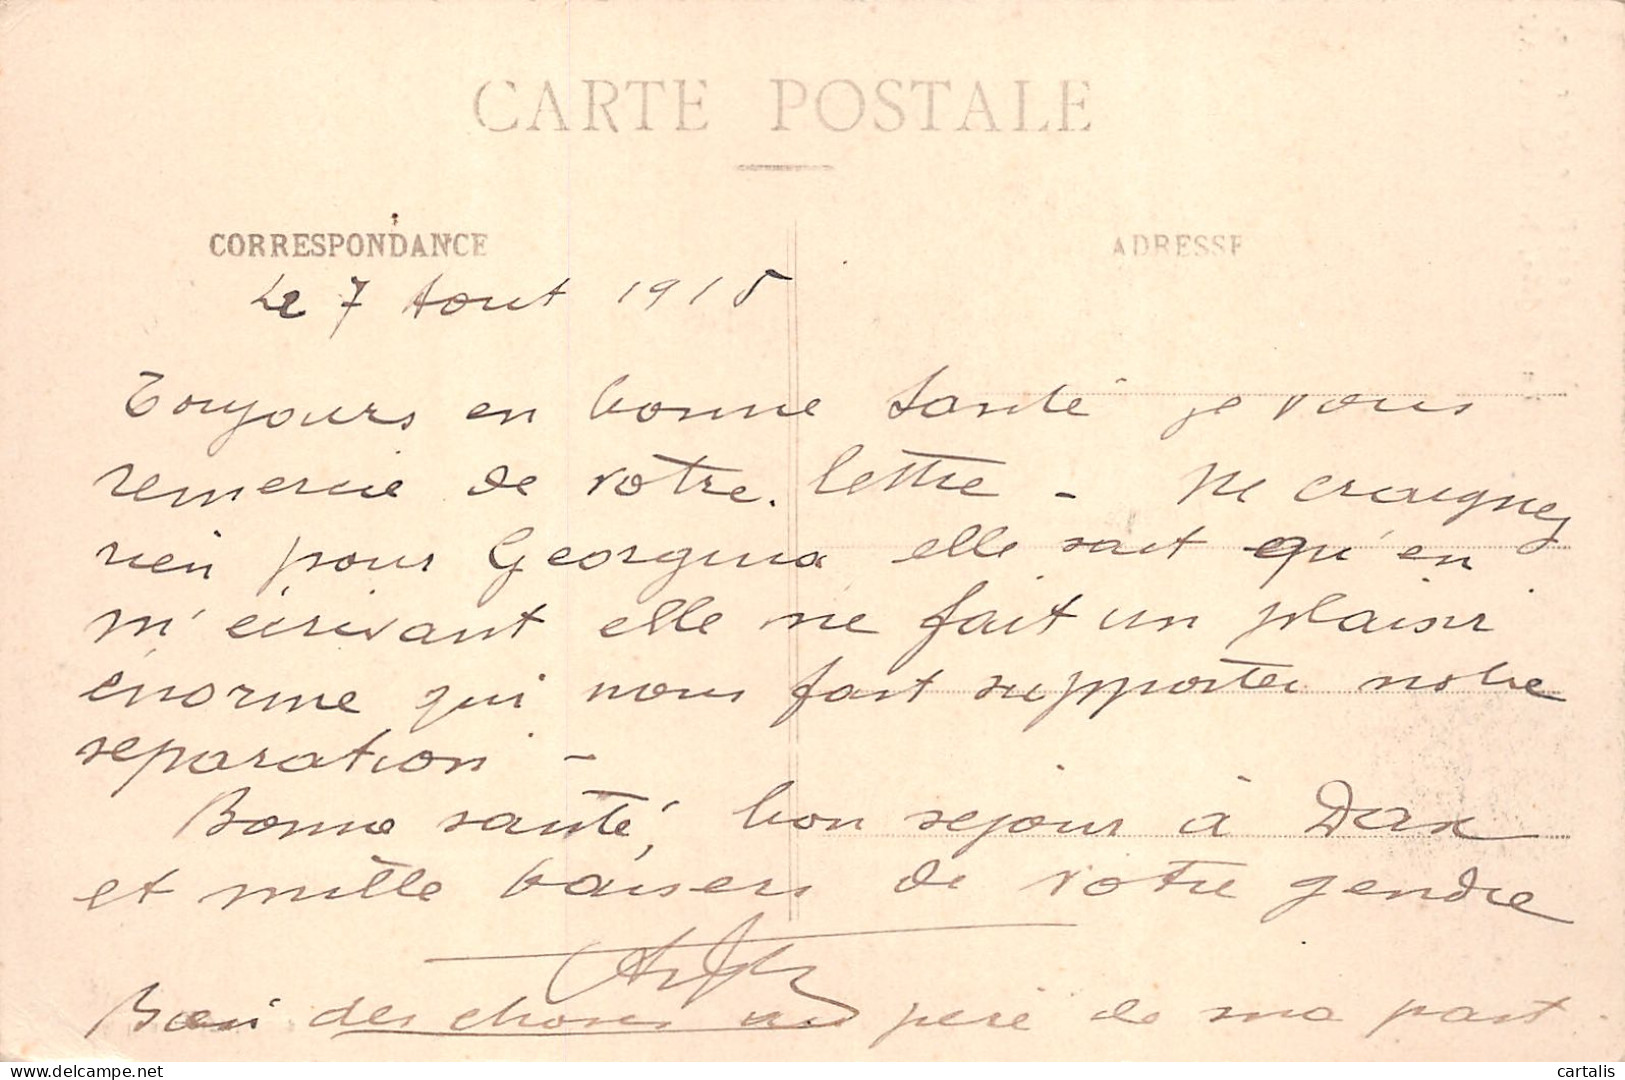 CARTE POSTALE
CORRESPONDANCE
ADRESSE
Le 7 Aout 1915
Toujours en bonne santé je vous
remercie de votre lettre - Ne craignez
rien pour Georgina elle sait qu'en
m'écrivant elle me fait un plaisir
énorme qui nous fait supporter notre
separation -
Bonne santé, bon sejour à Dax
et mille baisers de votre gendre
Bien des choses au père de ma part.
cartalis